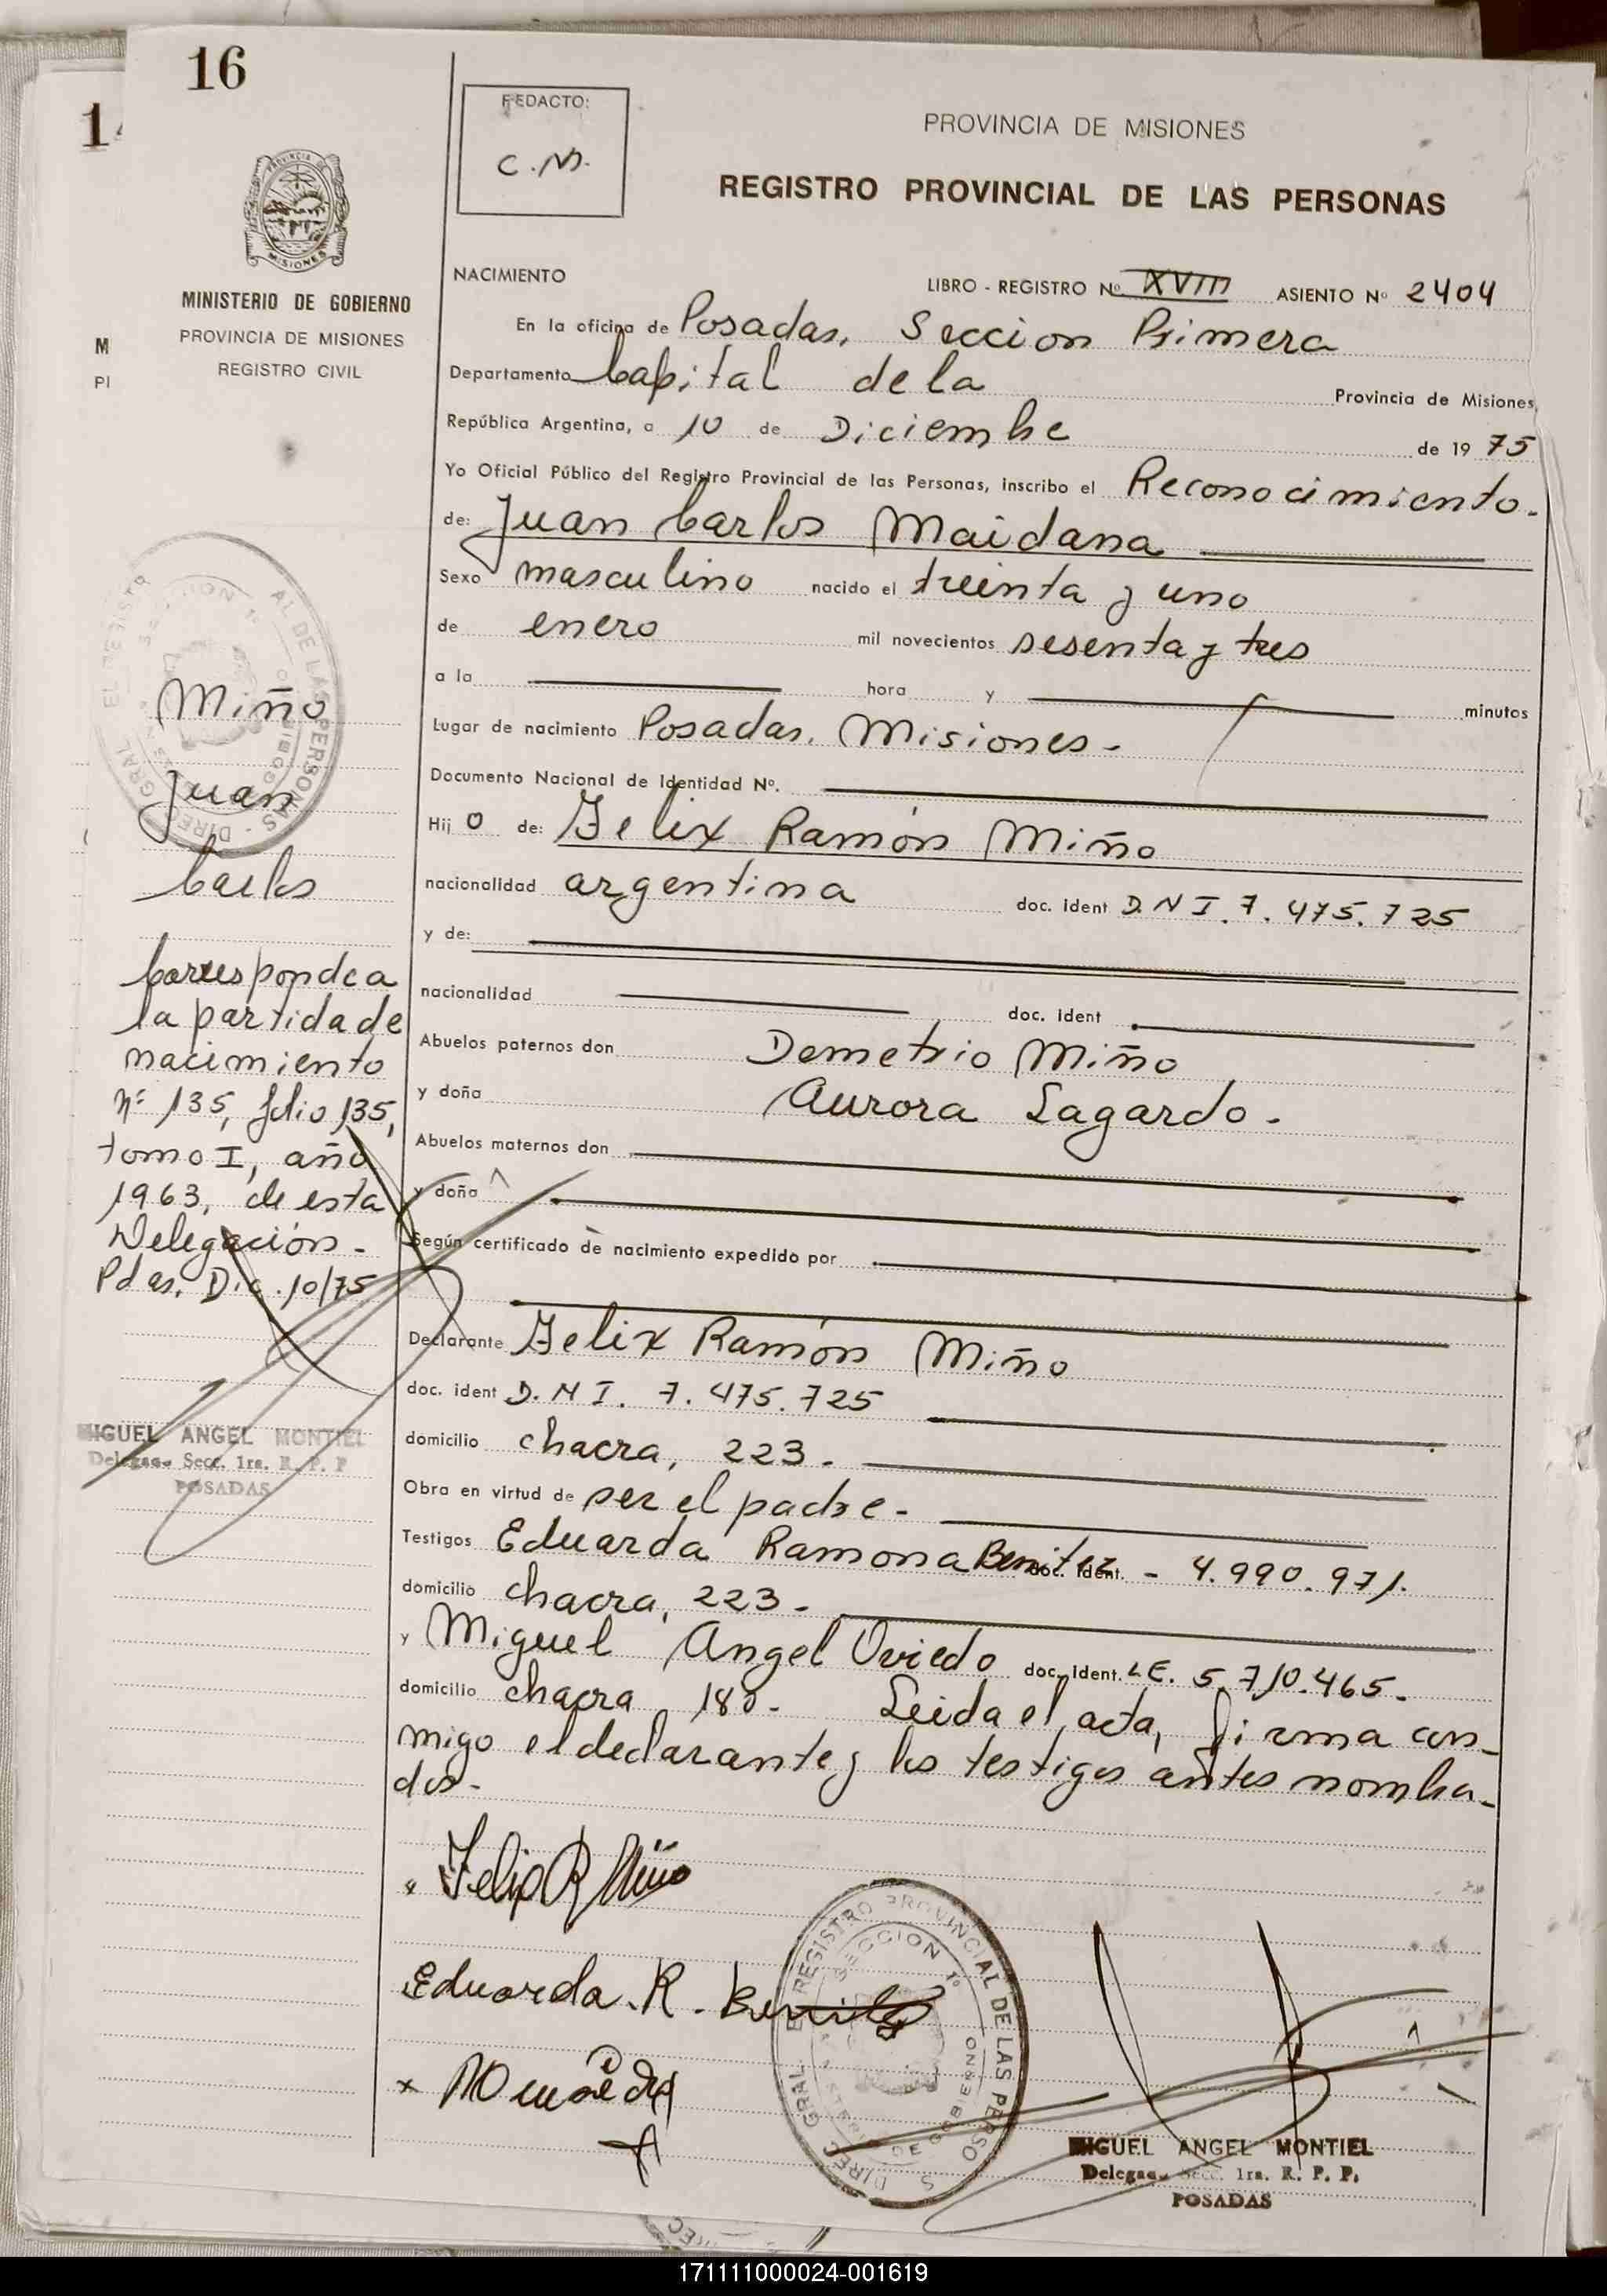 16
1
REDACTO:
C.M.
PROVINCIA DE MISIONES
REGISTRO PROVINCIAL DE LAS PERSONAS
PROVINCIA DE
MISIONES
MINISTERIO DE GOBIERNO
PROVINCIA DE MISIONES
REGISTRO CIVIL
M
PI
NACIMIENTO LIBRO - REGISTRO Nº XVIII ASIENTO Nº 2404
En la oficina de Posadas, Seccion Primera
Departamento Capital de la Provincia de Misiones,
República Argentina, a 10 de Diciembre de 1975
Yo Oficial Público del Registro Provincial de las Personas, inscribo el Reconocimiento.
de: Juan Carlos Maidana
Sexo masculino nacido el treinta y uno
de enero mil novecientos sesenta y tres
a la hora y minutos
Lugar de nacimiento Posadas, Misiones.
Documento Nacional de Identidad Nº.
Hijo de: Felix Ramón Miño
nacionalidad argentina doc. ident D.N I. 7.475.725
y de:
nacionalidad doc. ident
Abuelos paternos don Demetrio Miño
y doña Aurora Lagardo.
Abuelos maternos don
y doña
Según certificado de nacimiento expedido por
Declarante Felix Ramón Miño
doc. ident D.N I. 7.475.725
domicilio chacra, 223.
Obra en virtud de ser el padre.
Testigos Eduarda Ramona Benitez doc. ident. - 4.990.971.
domicilio chacra, 223.
y Miguel Angel Oviedo doc. ident. LE. 5.710.465.
domicilio chacra 180. Leida el acta, firma con-
migo el declarante y los testigos antes nombra-
dos-
Miño
Juan
Carlos
Corresponde a
la partida de
nacimiento
Nº 135, folio 135,
tomo I, año
1963, de esta
Delegación-
Pdas. Dic. 10/75
MIGUEL ANGEL MONTIEL
Delegado Secc. 1ra. R. P. P
POSADAS
Felix R Miño
Eduarda. R. Benitez
DIREC. GRAL. EL REGISTRO PROVINCIAL DE LAS PERSO S
SECCION 1º
DE GOBIERNO
MIGUEL ANGEL MONTIEL
Delegado Secc. 1ra. R. P. P.
POSADAS
171111000024-001619